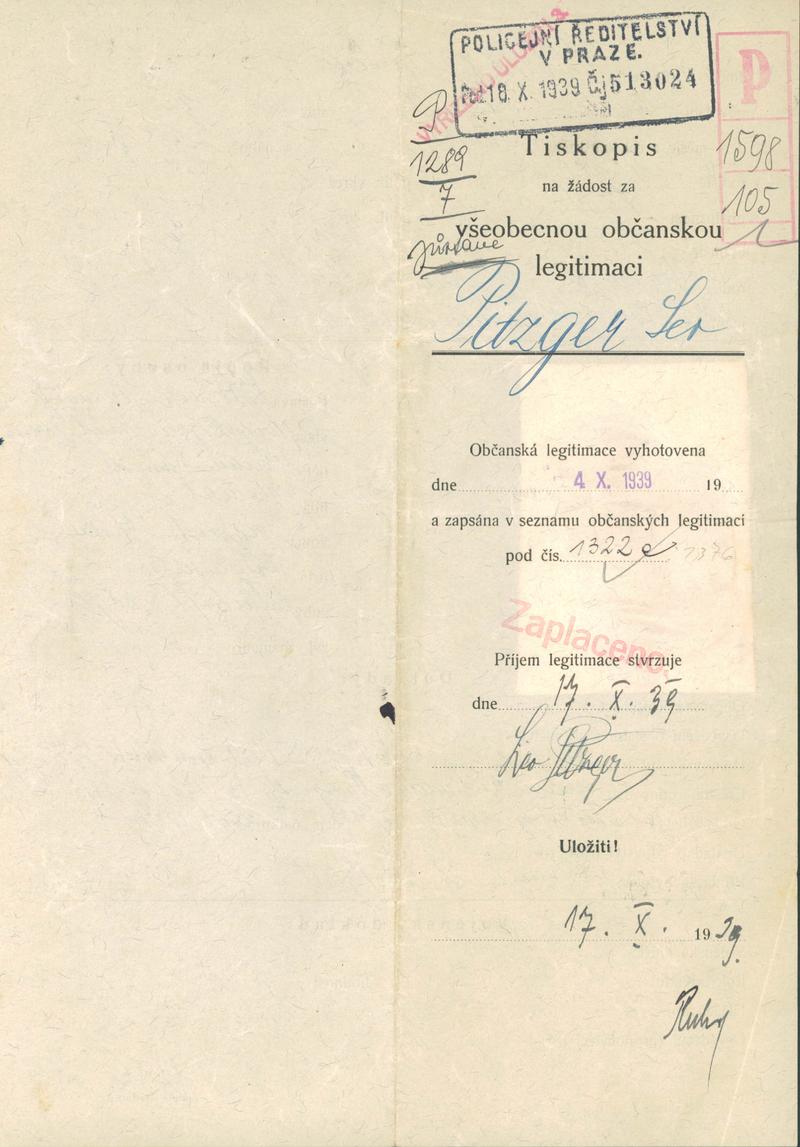 POLICEJNÍ ŘEDITELSTVÍ
V PRAZE.
18. X. 1939 Čj 513024
P
P
1289
7
1598
105
Tiskopis
na žádost za
všeobecnou občanskou
legitimaci
Pitzger Leo
Občanská legitimace vyhotovena
dne 4 X. 1939 19
a zapsána v seznamu občanských legitimací
pod čís. 1322 1376
Zaplaceno.
Příjem legitimace stvrzuje
dne 17. X. 39
Leo Pitzger
Uložiti!
17. X. 1939.